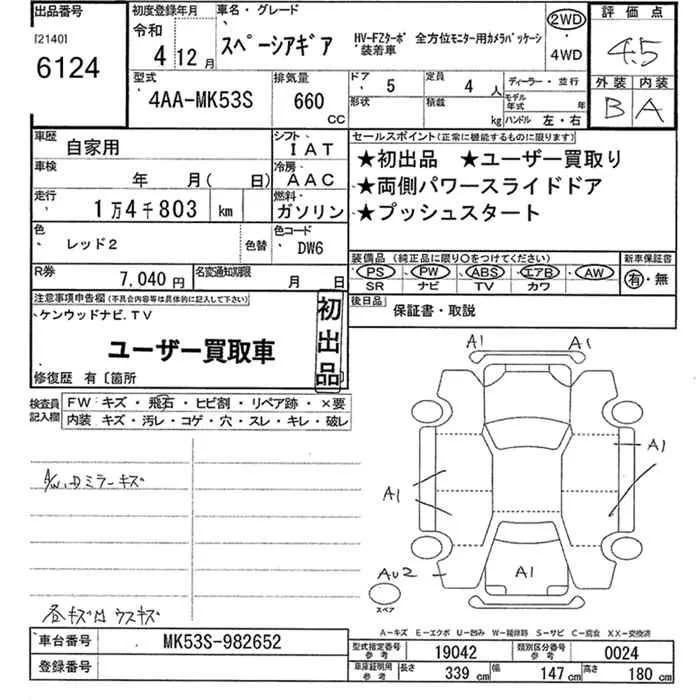 出品番号
[2140]
6124
初度登録年月
令和
4年 12月
車名・グレード
スペーシアギア
HV-FZターボ 全方位モニター用カメラパッケージ
装着車
2WD
・
4WD
評価点
4.5
外装 内装
B A
型式
4AA-MK53S
排気量
660
CC
ドア
5
定員
4人
形状
積載
kg
ディーラー・並行
モデル年式 年
ハンドル 左・右
車歴
自家用
シフト
IAT
車検
年 月( 日)
冷房
AAC
走行
1万4千803 km
燃料
ガソリン
色
レッド2
色替
色コード
DW6
R券
7,040円
名変通知期限
月 日
セールスポイント(正常に機能するものに限ります)
★初出品 ★ユーザー買取り
★両側パワースライドドア
★プッシュスタート
装備品(純正品に限り○をつけてください)
PS・PW・ABS・エアB・AW
SR ナビ TV カワ
新車保証書
有・無
後日品
保証書・取説
注意事項申告欄(不具合内容等は具体的に記入して下さい)
ケンウッドナビ.TV
ユーザー買取車
初出品
修復歴 有〔箇所
検査員記入欄
FW キズ・飛石・ヒビ割・リペア跡・×要
内装 キズ・汚レ・コゲ・穴・スレ・キレ・破レ
A/W、Dミラーキズ
各キズ凹 ウスキズ
A1 A1
A1
A1
AU2
A1
スペア
A-キズ E-エクボ U-凹み W-補修跡 S-サビ C-腐食 XX-交換済
車台番号
MK53S-982652
登録番号
型式指定番号
参考
19042
類別区分番号
参考
0024
車庫証明用
参考
長さ 339 cm
幅 147 cm
高さ 180 cm